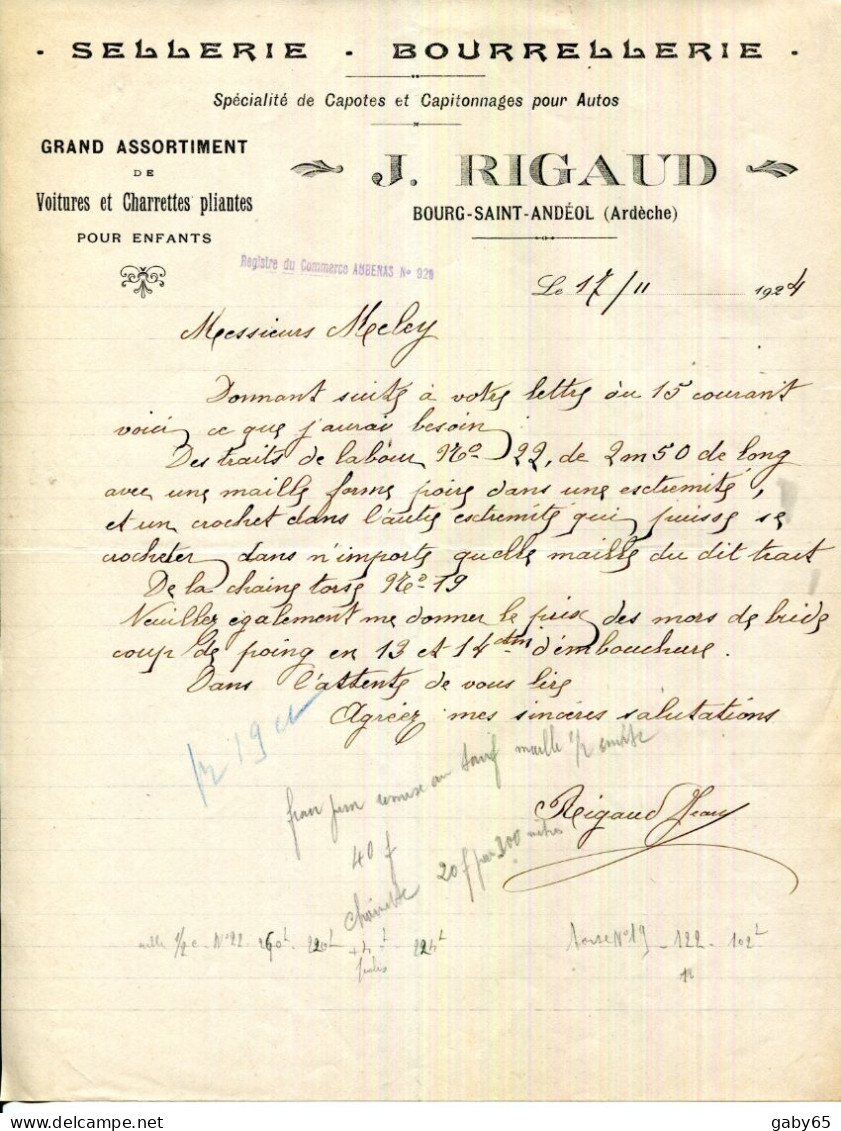 - SELLERIE - BOURRELLERIE -
Spécialité de Capotes et Capitonnages pour Autos
GRAND ASSORTIMENT
DE
Voitures et Charrettes pliantes
POUR ENFANTS
J. RIGAUD
BOURG-SAINT-ANDÉOL (Ardèche)
Registre du Commerce AUBENAS N° 920
Le 17/11 1924
Messieurs Meley
Donnant suite à votre lettre du 15 courant
voici ce que j'aurai besoin
Des traits de labour No 22, de 2m50 de long
avec une maille forme poire dans une esctremité,
et un crochet dans l'autre esctremité qui puisse se
crocheter dans n'importe quelle maille du dit trait
De la chaine torse No 19
Veuillez également me donner le prix des mors de bride
coup de poing en 13 et 14 ctm d'embouchure.
Dans l'attente de vous lire
Agréez mes sincères salutations
19
remise au tarif maille 1/2
Rigaud Jean
40 f
20 f par 300 mètres
chainette
maille 1/2 c - N°22 - 260 - 220 - 224
torse N°19 - 122 - 102
18
gaby65